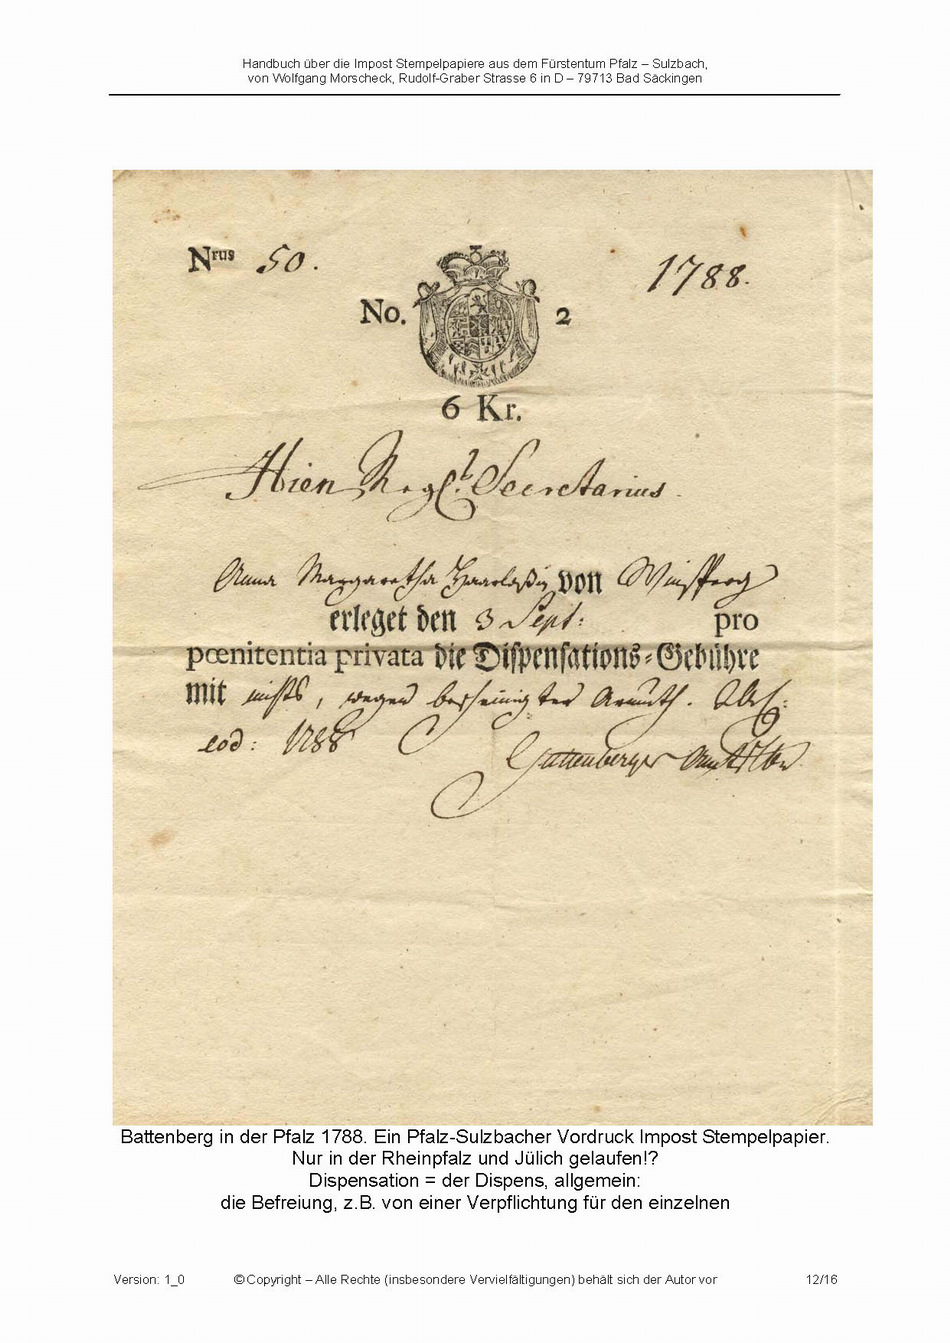 Handbuch über die Impost Stempelpapiere aus dem Fürstentum Pfalz – Sulzbach,
von Wolfgang Morscheck, Rudolf-Graber Strasse 6 in D – 79713 Bad Säckingen
Nrus 50. 1788.
No. 2
6 Kr.
Secretarius.
Anna Margaretha von
erleget den 3 Sept: pro
pœnitentia privata die Dispensations-Gebühre
mit nichts, wegen bescheinigter Armuth.
eod: 1788
Battenberg in der Pfalz 1788. Ein Pfalz-Sulzbacher Vordruck Impost Stempelpapier.
Nur in der Rheinpfalz und Jülich gelaufen!?
Dispensation = der Dispens, allgemein:
die Befreiung, z.B. von einer Verpflichtung für den einzelnen
Version: 1_0 © Copyright – Alle Rechte (insbesondere Vervielfältigungen) behält sich der Autor vor 12/16